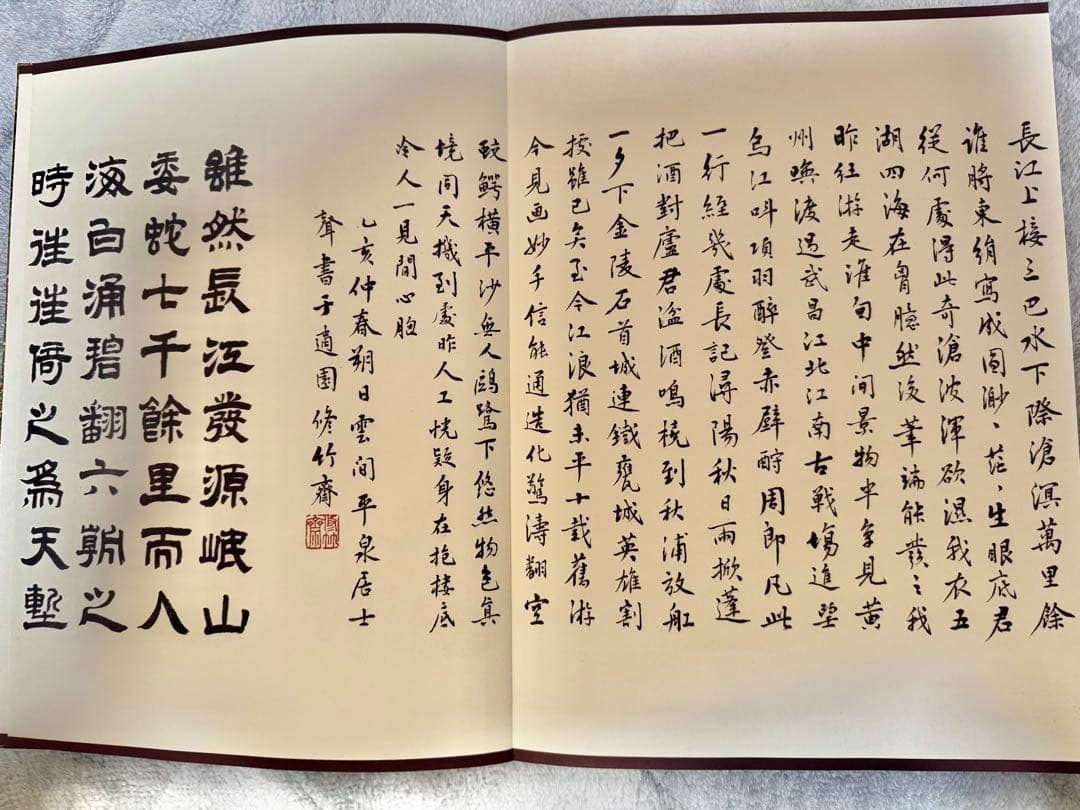 長江上接三巴水下際滄溟萬里餘
誰將東絹寫成圖渺〻茫〻生眼底君
從何處得此奇滄波渾欲濕我衣五
湖四海在胷臆然後筆端能發之我
昨經游走淮甸中間景物半曾見黃
州喚渡過武昌江北江南古戰塲進望
烏江叫項羽醉登赤壁酹周郎凡此
一行經幾處長記潯陽秋日雨掀蓬
把酒對廬君溢酒鳴橈到秋浦放舡
一夕下金陵石首城連鐵甕城英雄割
據雖已矣至今江浪猶未平十載舊游
今見画妙手信能通造化驚濤翻空
蛟鰐橫平沙無人鷗鷺下悠然物色真
境同天撝到處昨人工恍疑身在拖樓底
冷人一見開心胸
乙亥仲春朔日雲間平泉居士
聲書于適園修竹齋
雖然長江發源岷山
委蛇七千餘里而入
海百涌碧翻六朝之
時往往倚之為天塹